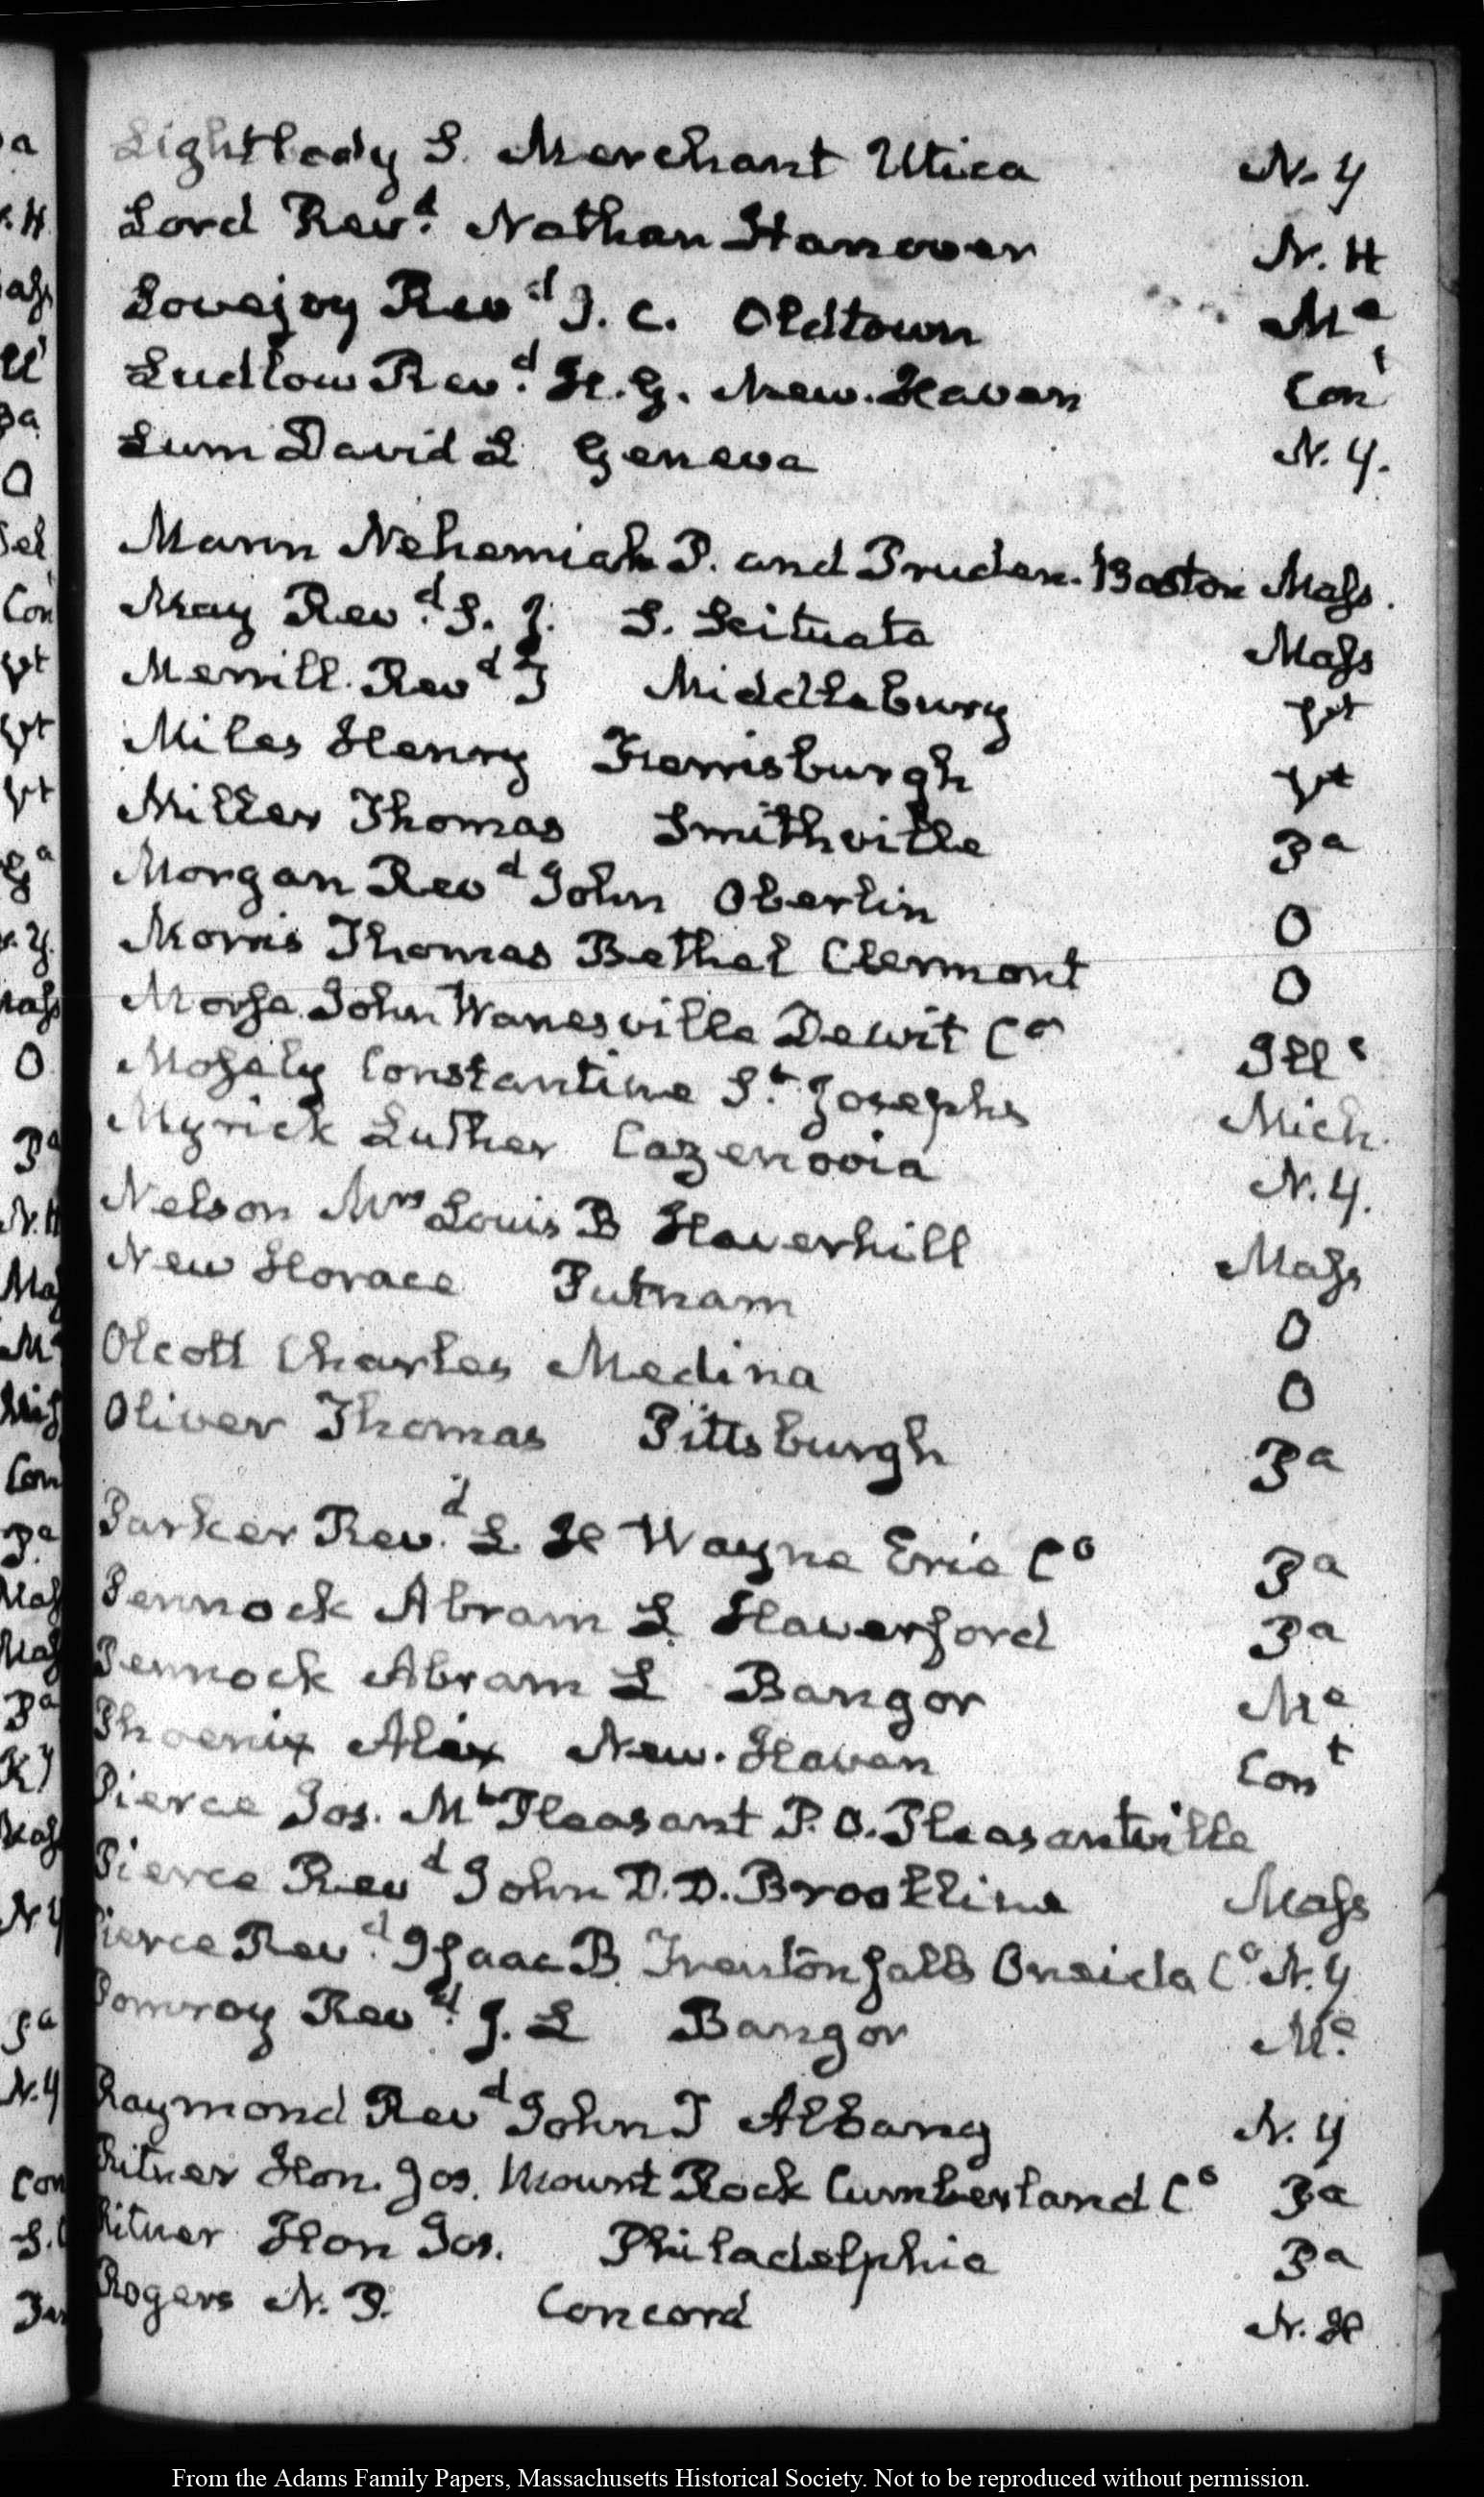 Lightbody S. Merchant Utica N. Y
Lord Revd. Nathan Hanover N. H
Lovejoy Revd J. C. Oldtown Me
Ludlow Revd. H. G. New. Haven Cont
Lum David L Geneva N. Y.
Mann Nehemiah P. and Pruden. Boston Mass.
May Revd. S. J. S. Scituate Mass
Merrill. Revd T Middlebury Vt
Miles Henry Ferrisburgh Vt
Miller Thomas Smithville Pa
Morgan Revd John Oberlin O
Morris Thomas Bethel Clermont O
Morse John Wanesville Dewit Co Ills
Mosely Constantine St. Josephs Mich.
Myrick Luther Cazenovia N. Y.
Nelson Mrs Louis B Haverhill Mass
New Horace Putnam O
Olcott Charles Medina O
Oliver Thomas Pittsburgh Pa
Parker Revd. L. H Wayne Erie Co Pa
Pennock Abram L Haverford Pa
Pennock Abram L Bangor Me
Phoenix Alex New. Haven Cont
Pierce Jos. Mt Pleasant P. O. Pleasantville
Pierce Revd John D. D. Brookline Mass
Pierce Revd. Isaac B. Trenton falls Oneida Co. N. Y
Pomroy Revd. J. L Bangor Me.
Raymond Revd John T Albany N. Y
Ritner Hon. Jos. Mount Rock Cumberland Co Pa
Ritner Hon Jos. Philadelphia Pa
Rogers N. P. Concord N. H
From the Adams Family Papers, Massachusetts Historical Society. Not to be reproduced without permission.